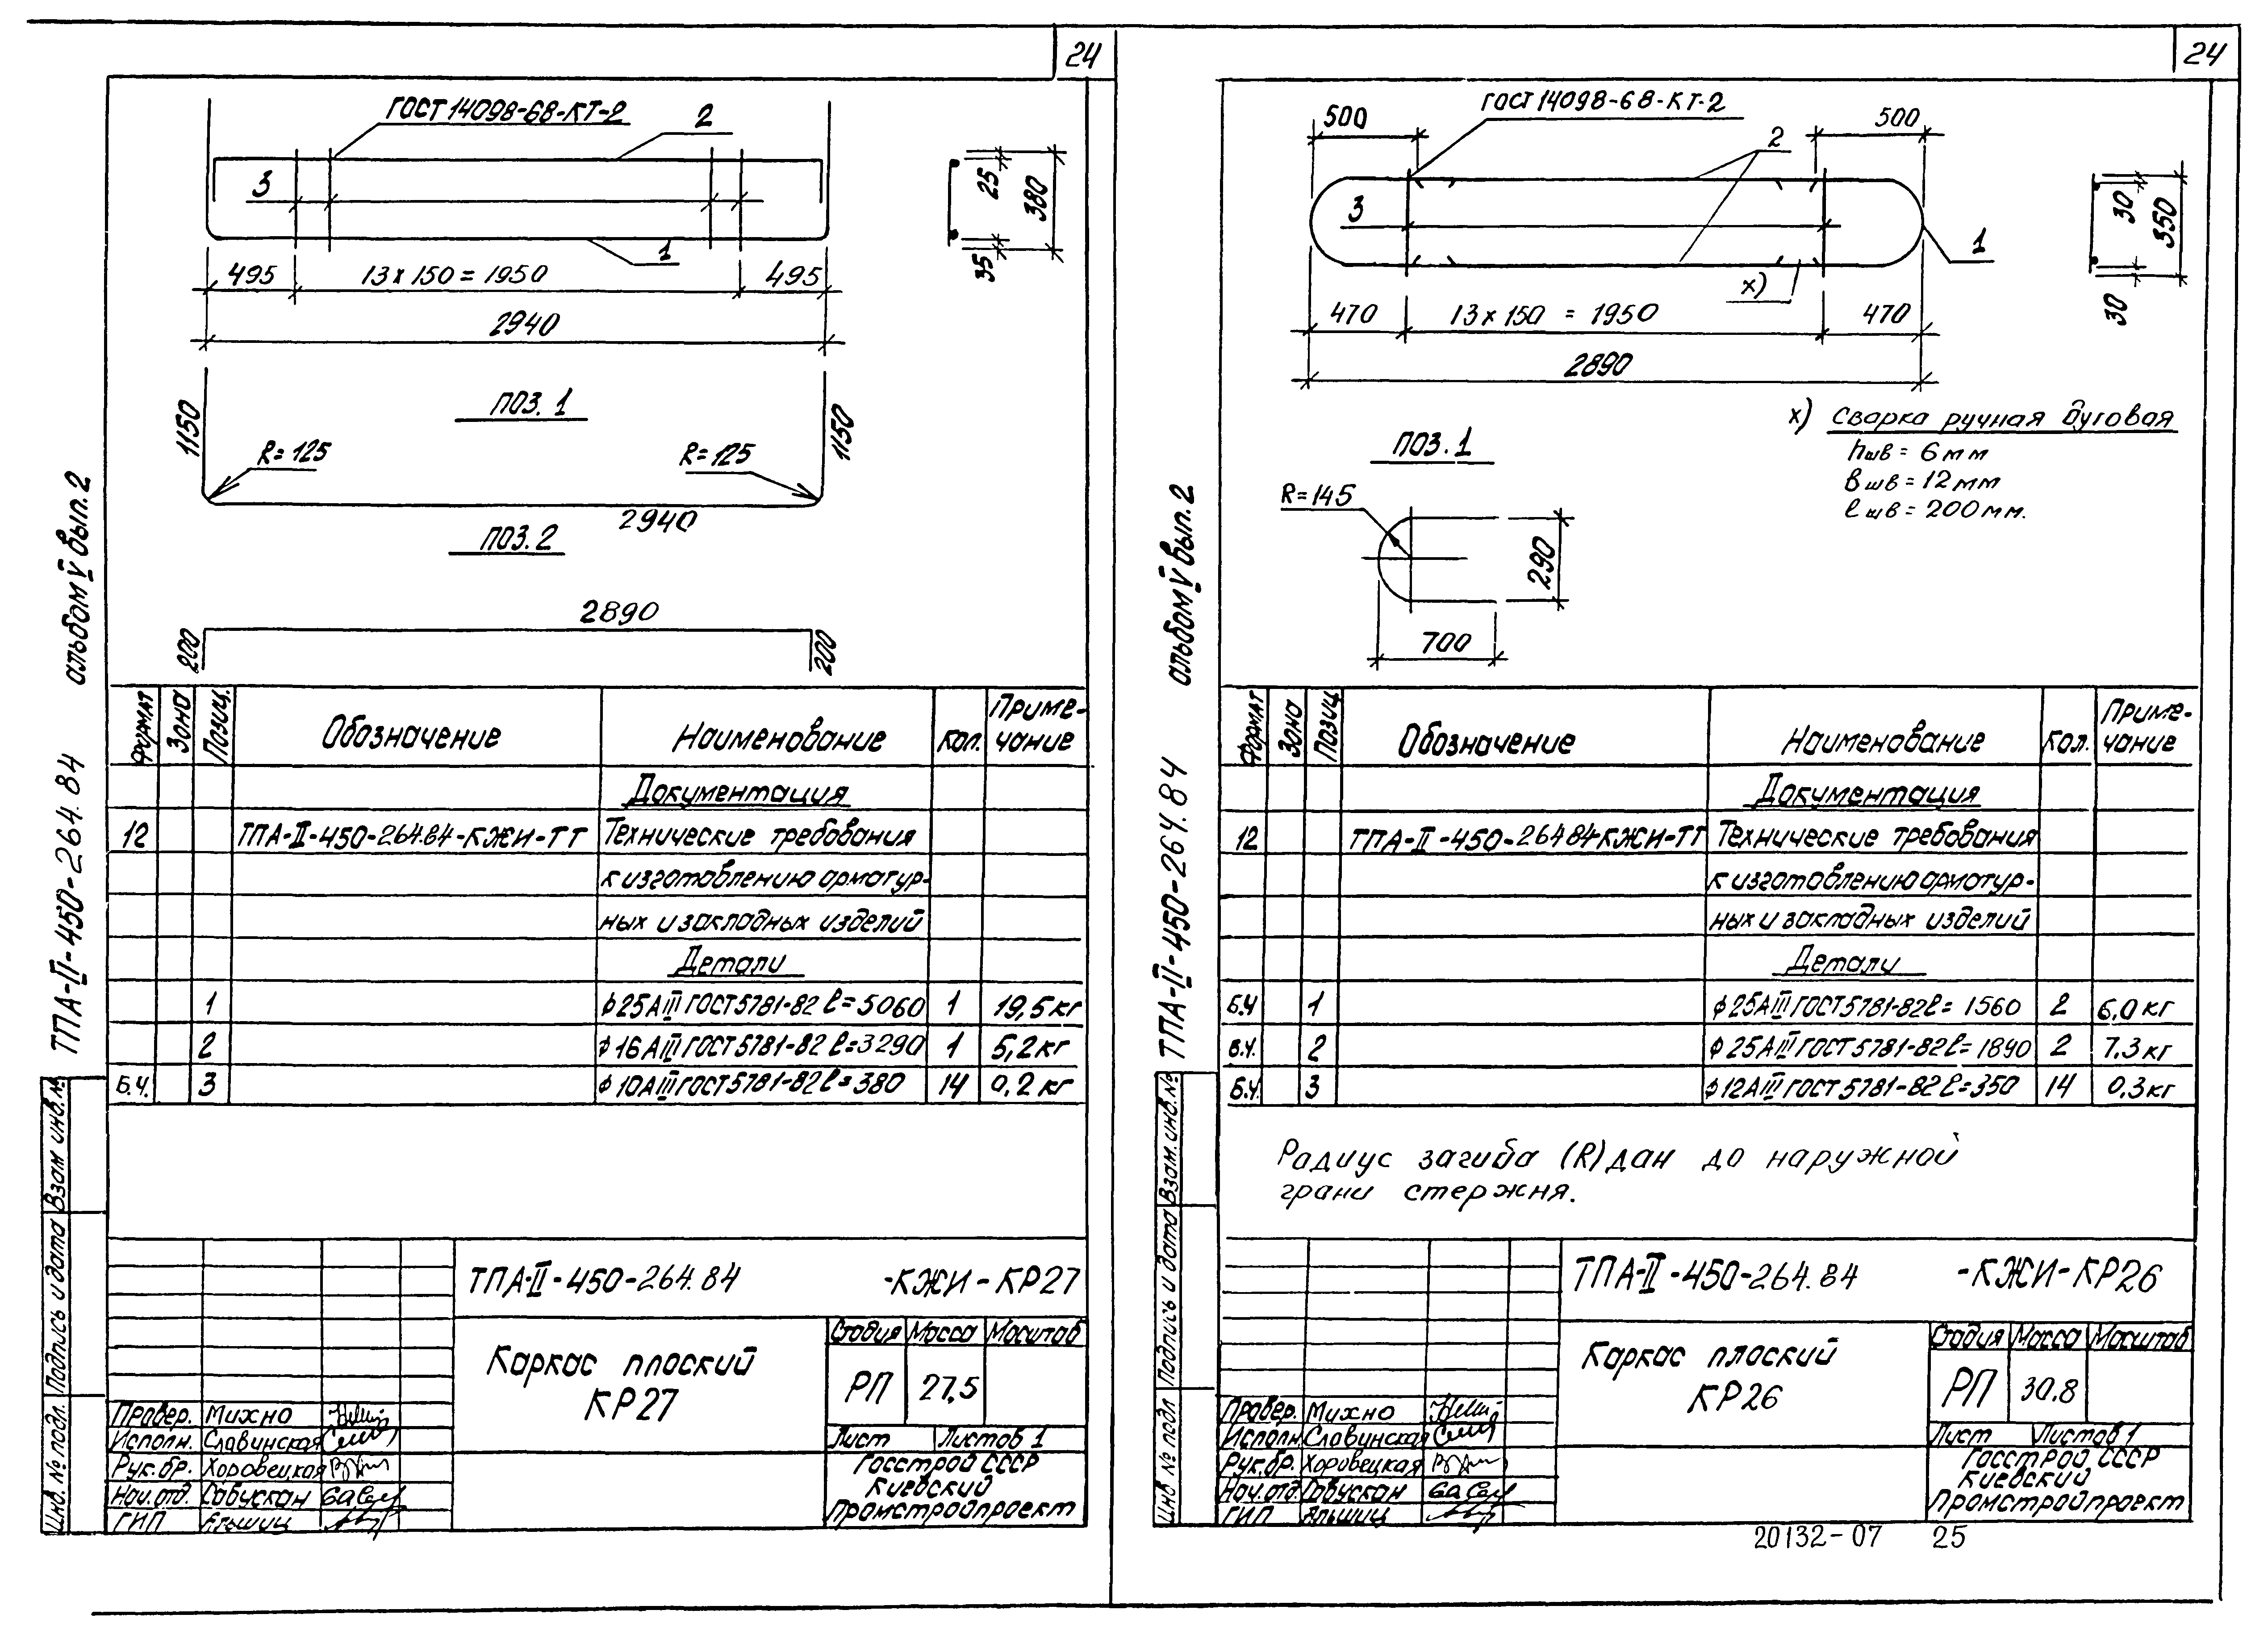 24
ГОСТ 14098-68-КТ-2
2
3
1
25
380
35
495
13 х 150 = 1950
495
2940
ПОЗ. 1
1150
R=125
R=125
1150
2940
ПОЗ. 2
2890
200
200
ТПА-II-450-264.84 альбом V вып. 2
Формат Зона Позиц. Обозначение Наименование Кол. Приме-
чание
Документация
12 ТПА-II-450-264.84-КЖИ-ТТ Технические требования
к изготовлению арматур-
ных и закладных изделий
Детали
1 ф25АIII ГОСТ 5781-82 ℓ=5060 1 19,5кг
2 ф16АIII ГОСТ 5781-82 ℓ=3290 1 5,2кг
Б.Ч. 3 ф10АIII ГОСТ 5781-82 ℓ=380 14 0,2 кг
Инв. № подл. Подпись и дата Взам инв. №
ТПА-II-450-264.84 -КЖИ-КР27
Каркас плоский
КР27
Стадия Масса Масштаб
РП 27,5
Лист Листов 1
Госстрой СССР
Киевский
Промстройпроект
Провер. Михно
Исполн. Славинская
Рук. бр. Хоровецкая
Нач. отд. Савускан
ГИП
24
500
ГОСТ 14098-68-КТ-2
500
2
3
1
х)
30
350
30
470
13 х 150 = 1950
470
2890
х) Сварка ручная дуговая
hшв = 6мм
вшв = 12мм
ℓшв = 200мм.
ПОЗ. 1
R=145
290
700
ТПА-II-450-264.84 альбом V вып. 2
Формат Зона Позиц Обозначение Наименование Кол. Приме-
чание
Документация
12 ТПА-II-450-264.84-КЖИ-ТТ Технические требования
к изготовлению арматур-
ных и закладных изделий
Детали
Б.Ч 1 ф25АIII ГОСТ 5781-82 ℓ=1560 2 6,0 кг
Б.Ч. 2 ф25АIII ГОСТ 5781-82 ℓ=1890 2 7.3 кг
Б.Ч. 3 ф12АIII ГОСТ 5781-82 ℓ=350 14 0.3кг
Радиус загиба (R) дан до наружной
грани стержня.
Инв № подл Подпись и дата Взам. инв. №
ТПА-II-450-264.84 -КЖИ-КР26
Каркас плоский
КР26
Стадия Масса Масштаб
РП 30.8
Лист Листов 1
Госстрой СССР
Киевский
Промстройпроект
Провер. Михно
Исполн. Славинская
Рук. бр. Хоровецкая
Нач. отд. Савускан
ГИП
20132-07 25